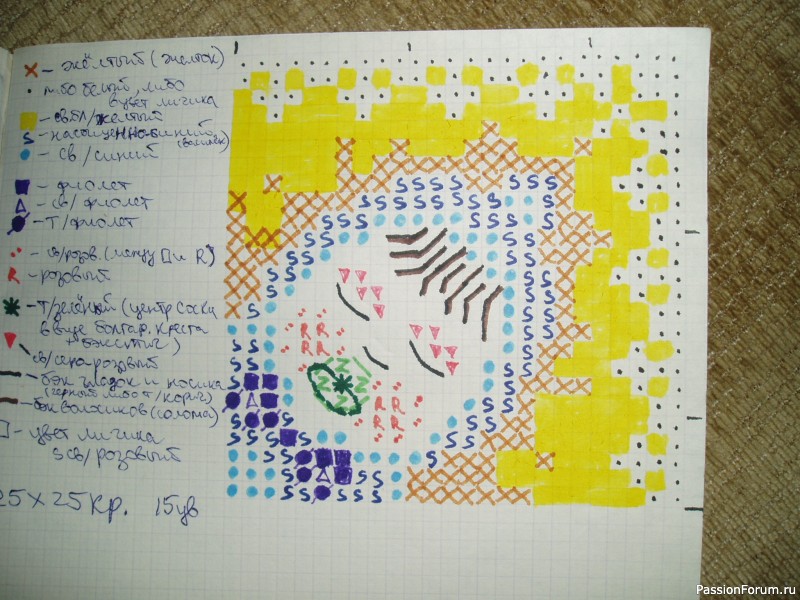 - жёлтый (желток)
либо белый, либо
в цвет личика
- св/жёлтый
- насыщенно-синий
(валик)
- св/синий
- фиолет
- св/фиолет
- т/фиолет
- св/розов. (между □ и R)
R - розовый
- т/зелёный (центр соски
в виде болгар. креста
+ бэкстич)
св/серо-розовый
- бэк глазок и носика
(чёрный либо т/корич)
- бэк волосиков (солома)
□ - цвет личика
св/розовый
25 х 25 кр. 15 цв
PassionForum.ru